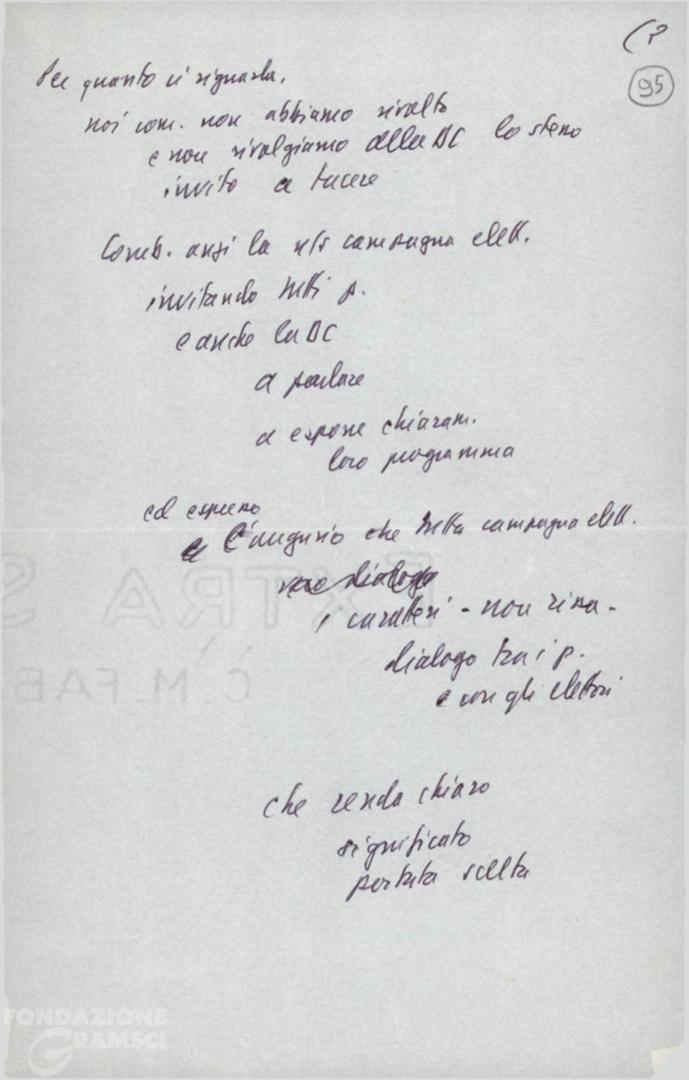 (?
95
Per quanto ci riguarda,
noi com. non abbiamo rivolto
e non rivolgiamo alla DC lo stesso
invito a tacere
Comb. anzi la ns campagna elett.
invitando tutti p.
e anche la DC
a parlare
a esporre chiaram.
loro programma
ed espresso
l'augurio che tutta campagna elett.
vero dialogo
caratteri - non rissa -
dialogo tra i p.
e con gli elettori
che renda chiaro
significato
portata scelta
EXTRA S
C M FAB
FONDAZIONE
GRAMSCI